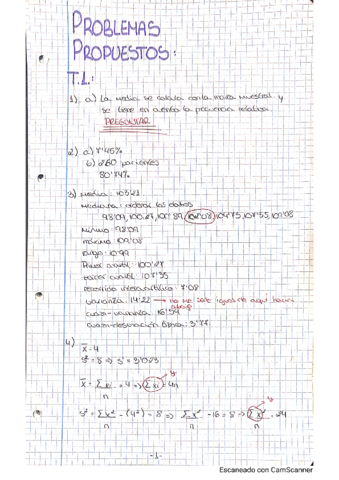 PROBLEMAS
PROPUESTOS:
T.1.:
1) a) La media se calcula con la marca muestral y
se tiene en cuenta la frecuencia relativa.
PREGUNTAR
2) a) 7'45%
b) 260 pacientes
80'74%
3) Media: 103'21
Mediana: ordenar los datos
98'09, 100'27, 100'89, 104'75, 107'35, 109'08
Mínimo: 98'09
máximo: 109'08
rango: 10'99
Primer cuartil: 100'27
tercer cuartil: 107'35
recorrido intercuartílico: 7'08
varianza: 14'22 → no me sale igual de aquí hacia
abajo
cuasi-varianza: 16'59
cuasi-desviación típica: 3'77
4) x̄ = 4
s² = 8 ⇒ s =
x̄ = Σxi / n = 4 ⇒ Σxi = 4n
s² = Σx² / n - (4²) = 8 ⇒ Σx² / n - 16 = 8 ⇒ Σx² / n = 24
-1-
Escaneado con CamScanner